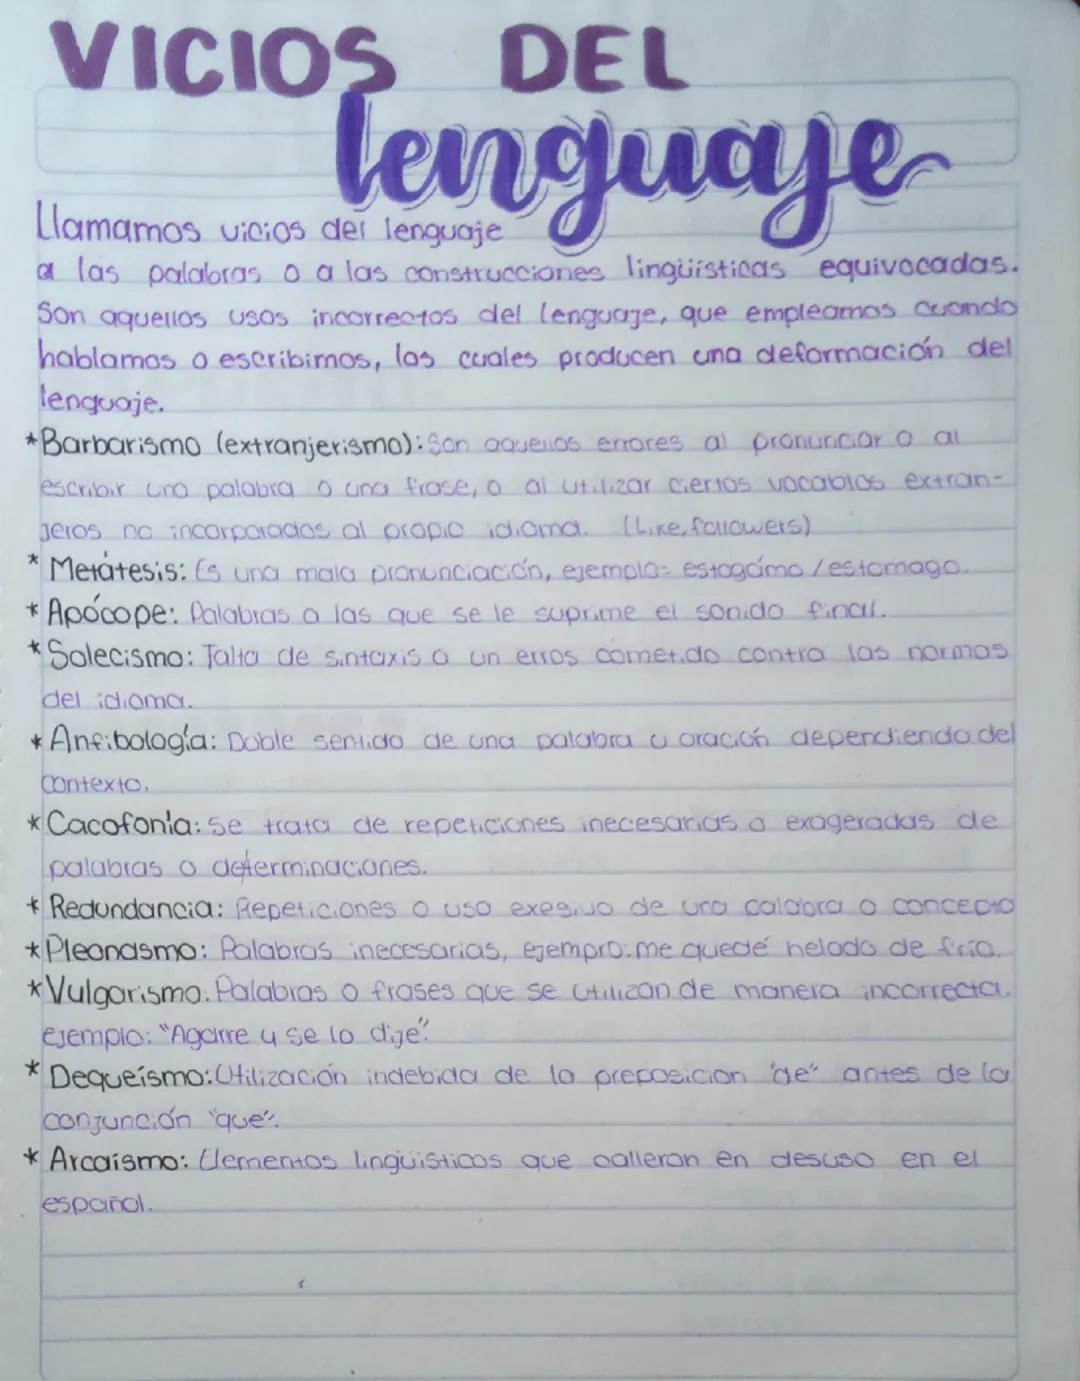 VICIOS DEL
lenguaje
Llamamos vicios del lenguaje
a las palabras o a las construcciones lingüísticas equivocadas.
Son aquellos usos incorrectos del lenguaje, que empleamos cuando
hablamos o escribimos, los cuales producen una deformación del
lenguaje.
*Barbarismo (extranjerismo): Son aquellos errores al pronunciar o al
escribir una palabra o una frase, o al utilizar ciertos vocablos extran-
jeros no incorporados al propio idioma. (Like, followers)
* Metátesis: Es una mala pronunciación, ejemplo: estogámo / estomago.
* Apócope: Palabras a las que se le suprime el sonido final.
* Solecismo: Falta de sintaxis o un erros cometido contra las normas
del idioma.
* Anfibología: Doble sentido de una palabra u oración dependiendo del
contexto.
* Cacofonía: Se trata de repeticiones inecesarias o exageradas de
palabras o determinaciones.
* Redundancia: Repeticiones o uso exesivo de una palabra o concepto
* Pleonasmo: Palabras inecesarias, ejempro: me quedé helado de frío.
* Vulgarismo: Palabras o frases que se utilizan de manera incorrecta.
ejemplo: "Agarre y se lo dije".
* Dequeísmo: Utilización indebida de la preposicion "de" antes de la
conjunción "que".
* Arcaísmo: Elementos lingüísticos que calleron en desuso en el
español.